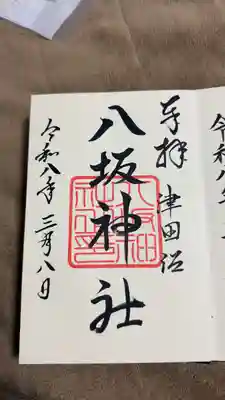 奉拝 津田
八坂神社
令和八年 三月八日
令和八年